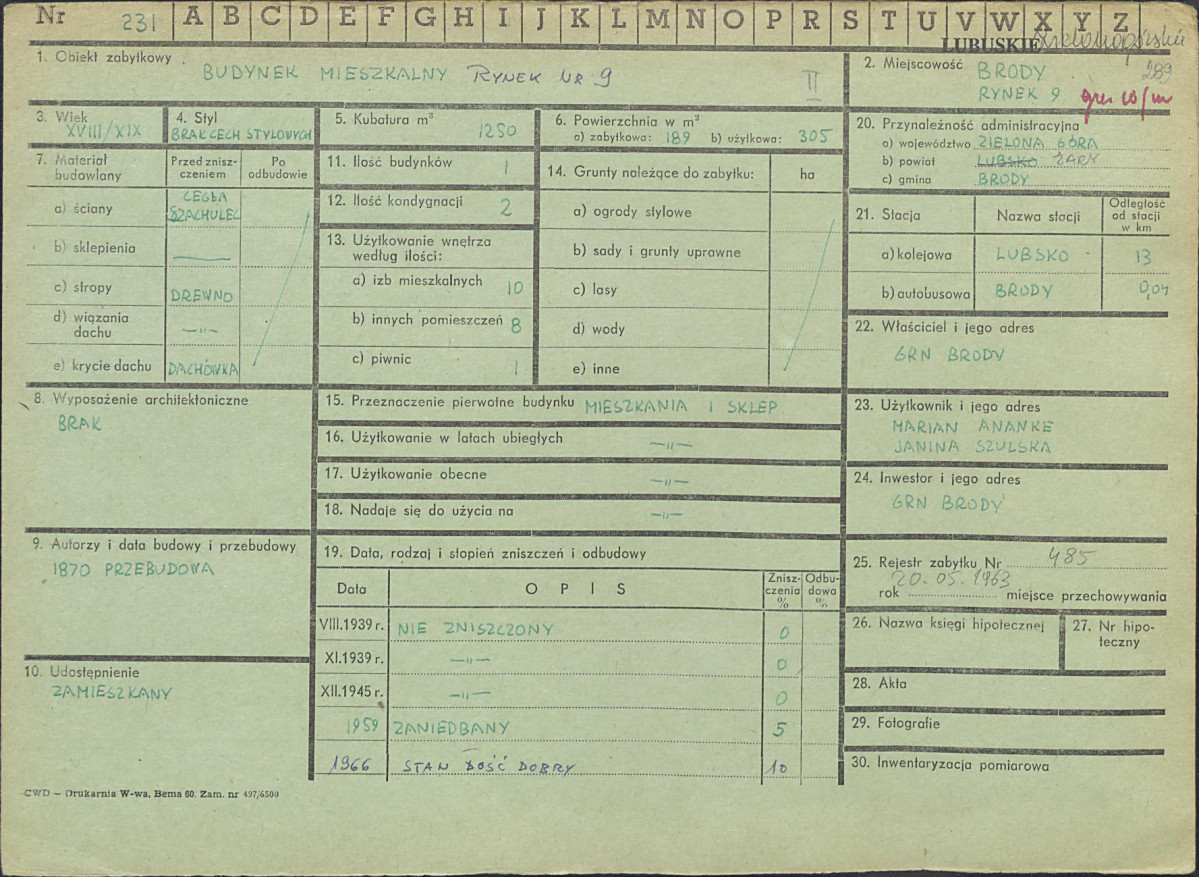 Nr 231 A B C D E F G H I J K L M N O P R S T U V W X Y Z
LUBUSKIE Zielonogórskie
1. Obiekt zabytkowy BUDYNEK MIESZKALNY RYNEK NR 9 II
2. Miejscowość BRODY 289
RYNEK 9
3. Wiek XVIII/XIX
4. Styl BRAK CECH STYLOWYCH
5. Kubatura m³ 1250
6. Powierzchnia w m³
a) zabytkowa: 189 b) użytkowa: 305
7. Materiał budowlany
Przed zniszczeniem
Po odbudowie
a) ściany CEGŁA SZACHULEC
b) sklepienia —
c) stropy DREWNO
d) wiązania dachu —„—
e) krycie dachu DACHÓWKA
8. Wyposażenie architektoniczne
BRAK
9. Autorzy i data budowy i przebudowy
1870 PRZEBUDOWA
10. Udostępnienie
ZAMIESZKANY
11. Ilość budynków 1
12. Ilość kondygnacji 2
13. Użytkowanie wnętrza według ilości:
a) izb mieszkalnych 10
b) innych pomieszczeń 8
c) piwnic 1
14. Grunty należące do zabytku: ha
a) ogrody stylowe
b) sady i grunty uprawne
c) lasy
d) wody
e) inne
15. Przeznaczenie pierwotne budynku MIESZKANIA I SKLEP
16. Użytkowanie w latach ubiegłych —„—
17. Użytkowanie obecne —„—
18. Nadaje się do użycia na —„—
19. Data, rodzaj i stopień zniszczeń i odbudowy
Data OPIS Zniszczenia % Odbudowa %
VIII.1939 r. NIE ZNISZCZONY 0
XI.1939 r. —„— 0
XII.1945 r. —„— 0
1959 ZANIEDBANY 5
1966 STAN DOŚĆ DOBRY 10
20. Przynależność administracyjna
a) województwo ZIELONA GÓRA
b) powiat LUBSKO ŻARY
c) gmina BRODY
21. Stacja Nazwa stacji Odległość od stacji w km
a) kolejowa LUBSKO 13
b) autobusowa BRODY 0,04
22. Właściciel i jego adres
GRN BRODY
23. Użytkownik i jego adres
MARIAN ANANKE
JANINA SZULSKA
24. Inwestor i jego adres
GRN BRODY
25. Rejestr zabytku Nr 485
rok 20.05.1963 miejsce przechowywania
26. Nazwa księgi hipotecznej
27. Nr hipoteczny
28. Akta
29. Fotografie
30. Inwentaryzacja pomiarowa
CWD — Drukarnia W-wa, Bema 60. Zam. nr 497/6500